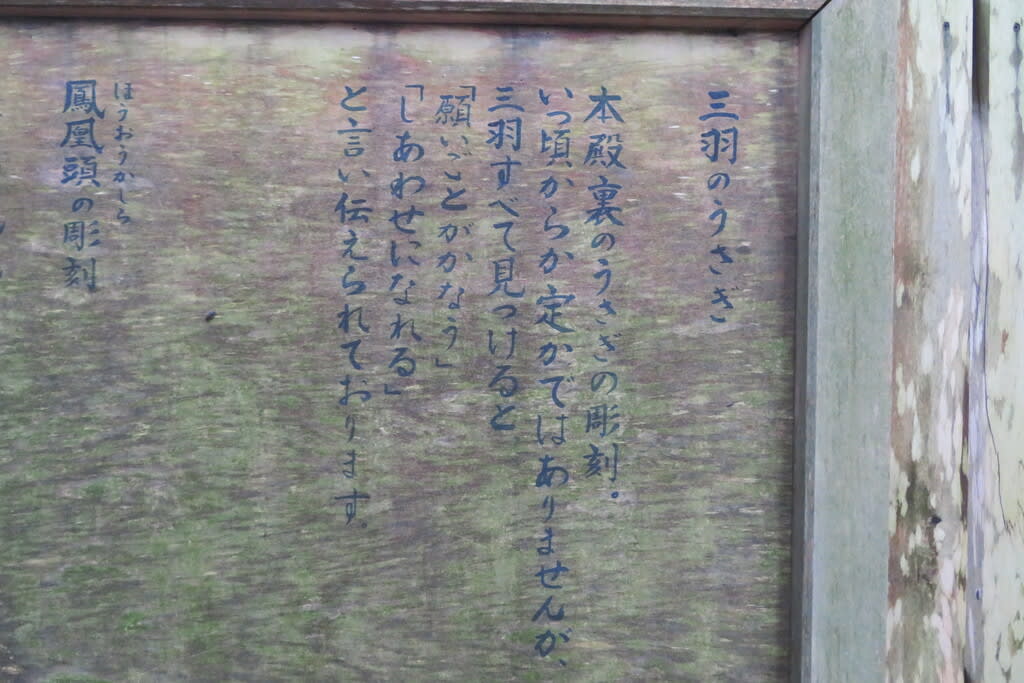 三羽のうさぎ
本殿裏のうさぎの彫刻。
いつ頃からか定かではありませんが、
三羽すべて見つけると、
「願いごとがかなう」
「しあわせになれる」
と言い伝えられております。
ほうおうかしら
鳳凰頭の彫刻